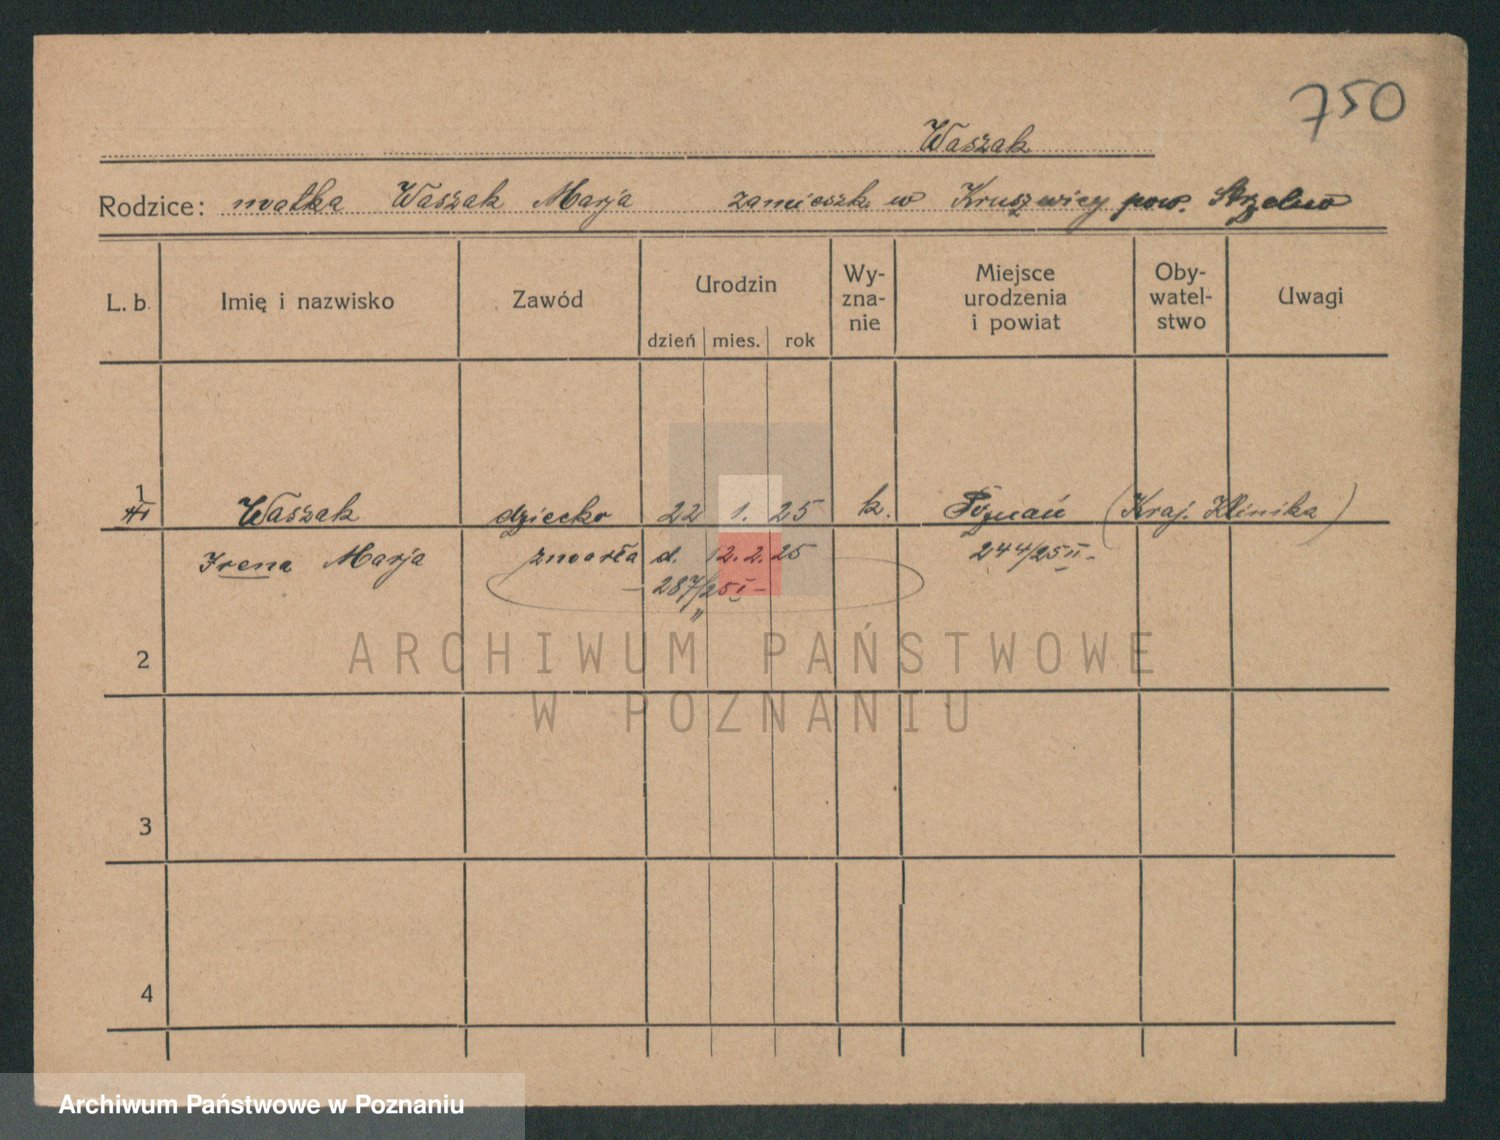 750
Waszak
Rodzice: matka Waszak Marja zamieszk. w Kruszwicy pow. Strzelno
L. b. Imię i nazwisko Zawód Urodzin dzień mies. rok Wy-zna-nie Miejsce urodzenia i powiat Oby-watel-stwo Uwagi
1 Waszak dziecko 22 1. 25 k. Poznań (Kraj. Klinika)
Irena Marja zmarła d. 12. 2. 25 244/25 II -
- 287/25 I -
2
ARCHIWUM PAŃSTWOWE
W POZNANIU
3
4
Archiwum Państwowe w Poznaniu